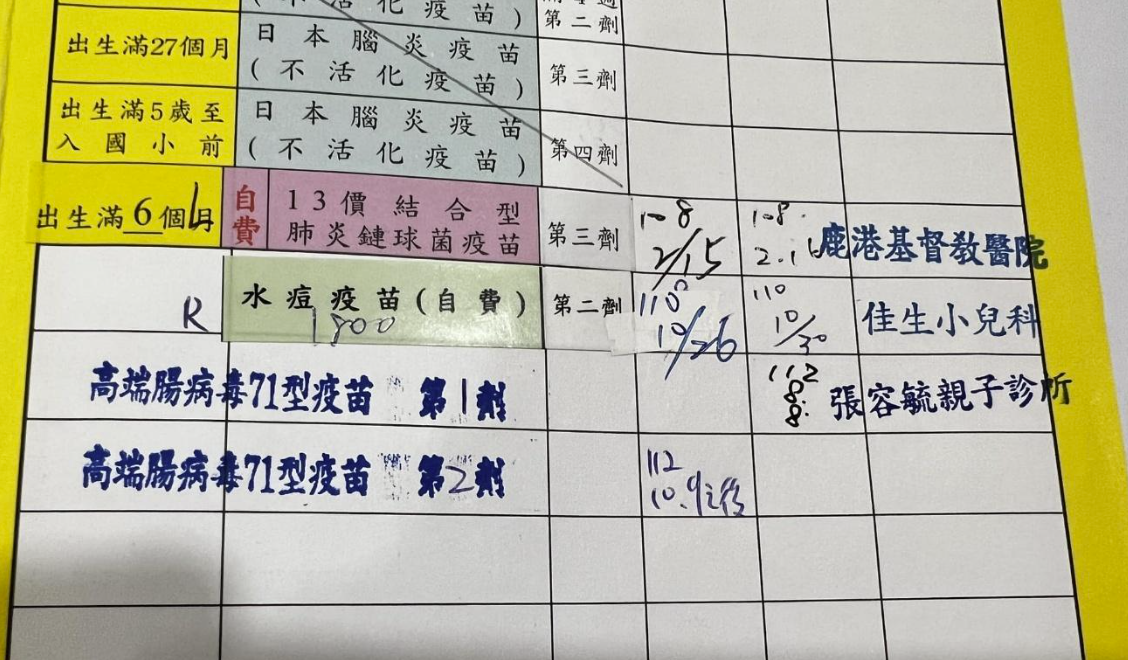 (不活化疫苗)
第二劑
出生滿27個月
日本腦炎疫苗
(不活化疫苗)
第三劑
出生滿5歲至
入國小前
日本腦炎疫苗
(不活化疫苗)
第四劑
出生滿6個月
自費
13價結合型
肺炎鏈球菌疫苗
第三劑
108
2/15
108.
2.16
鹿港基督教醫院
R
水痘疫苗(自費)
1800
第二劑
110
10/26
110
10/30
佳生小兒科
高端腸病毒71型疫苗 第1劑
112
8.
8.
張容毓親子診所
高端腸病毒71型疫苗 第2劑
112
10.9之後